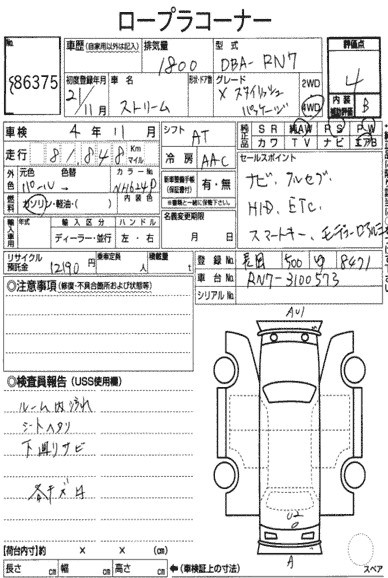 ロープラコーナー
No.
86375
車歴 (自家用以外は記入)
排気量
1800
型式
DBA- RN7
評価点
4
内装補助評価
B
初度登録年月
21年
11月
車名
ストリーム
形状・ドア数
グレード
X スタイリッシュ
パッケージ
2WD
4WD
車検 4年 11月
走行 81,848 Km マイル
シフト AT
冷房 AAC
純正品
SR 純AW PS PW
カワ TV ナビ エアB
セールスポイント
ナビ、アルセブ
HID、ETC、
スマートキー、
外色
元色
色替
カラーNo.
NH624P
内装色
パール
燃料
ガソリン・軽油・( )
新車整備手帳
(保証書付)
有・無
※書類と一緒に保管下さい
輸入車用
年式
輸入区分
ハンドル
ディーラー・並行
左・右
名義変更期限
月 日
リサイクル預託金
12190円
乗車定員
人
積載量
t
登録No. 長岡 500 8471
車台No. RN7-3100573
シリアルNo.
◎注意事項 (修復・不具合箇所および状態等)
◎検査員報告 (USS使用欄)
ルーム内汚れ
シートヘタリ
下廻りサビ
各キズ凹
AU1
U2
A
【荷台内寸】約 × × (cm)
長さ cm 幅 cm 高さ cm
(車検証上の寸法)
スペア